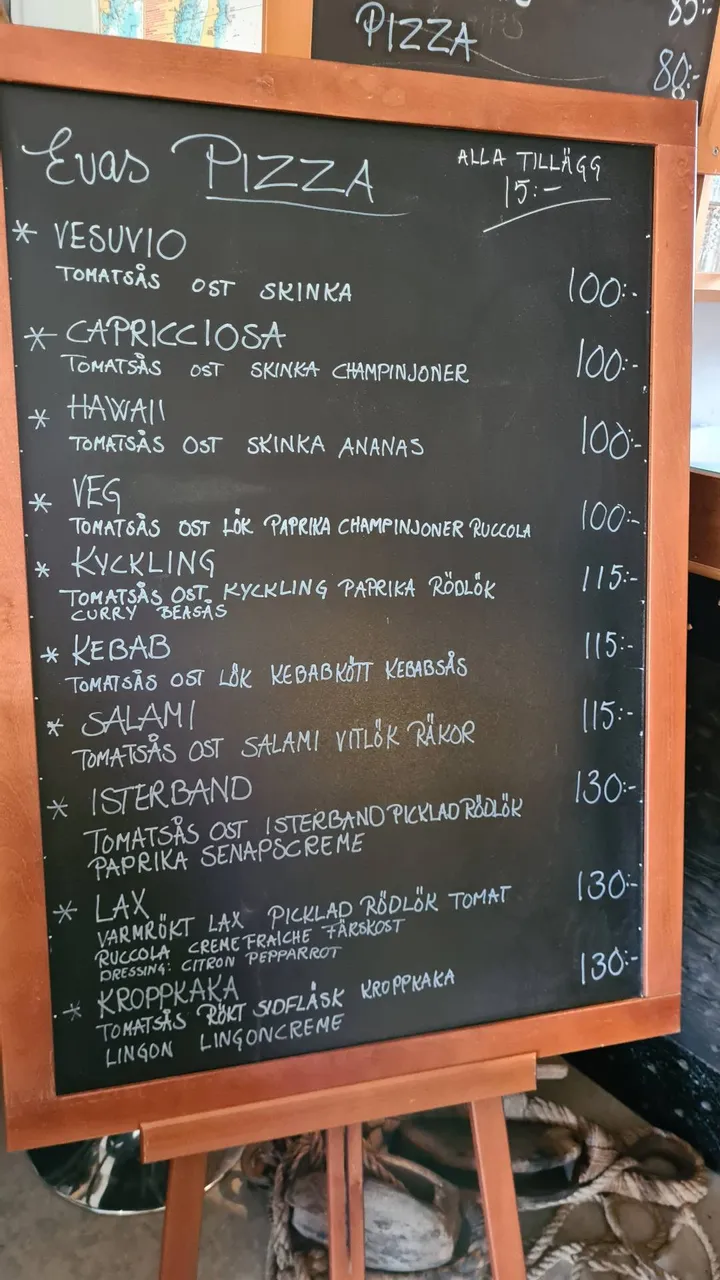 85:-
PIZZA
80:-
Evas PIZZA
ALLA TILLÄGG
15:-
* VESUVIO
TOMATSÅS OST SKINKA 100:-
* CAPRICCIOSA
TOMATSÅS OST SKINKA CHAMPINJONER 100:-
* HAWAII
TOMATSÅS OST SKINKA ANANAS 100:-
* VEG
TOMATSÅS OST LÖK PAPRIKA CHAMPINJONER RUCCOLA 100:-
* KYCKLING 115:-
TOMATSÅS OST KYCKLING PAPRIKA RÖDLÖK
CURRY BEASÅS
* KEBAB 115:-
TOMATSÅS OST LÖK KEBABKÖTT KEBABSÅS
* SALAMI 115:-
TOMATSÅS OST SALAMI VITLÖK RÄKOR
* ISTERBAND 130:-
TOMATSÅS OST ISTERBAND PICKLAD RÖDLÖK
PAPRIKA SENAPSCREME
* LAX 130:-
VARMRÖKT LAX PICKLAD RÖDLÖK TOMAT
RUCCOLA CREME FRAICHE FÄRSKOST
DRESSING: CITRON PEPPARROT
* KROPPKAKA 130:-
TOMATSÅS RÖKT SIDFLÄSK KROPPKAKA
LINGON LINGONCREME